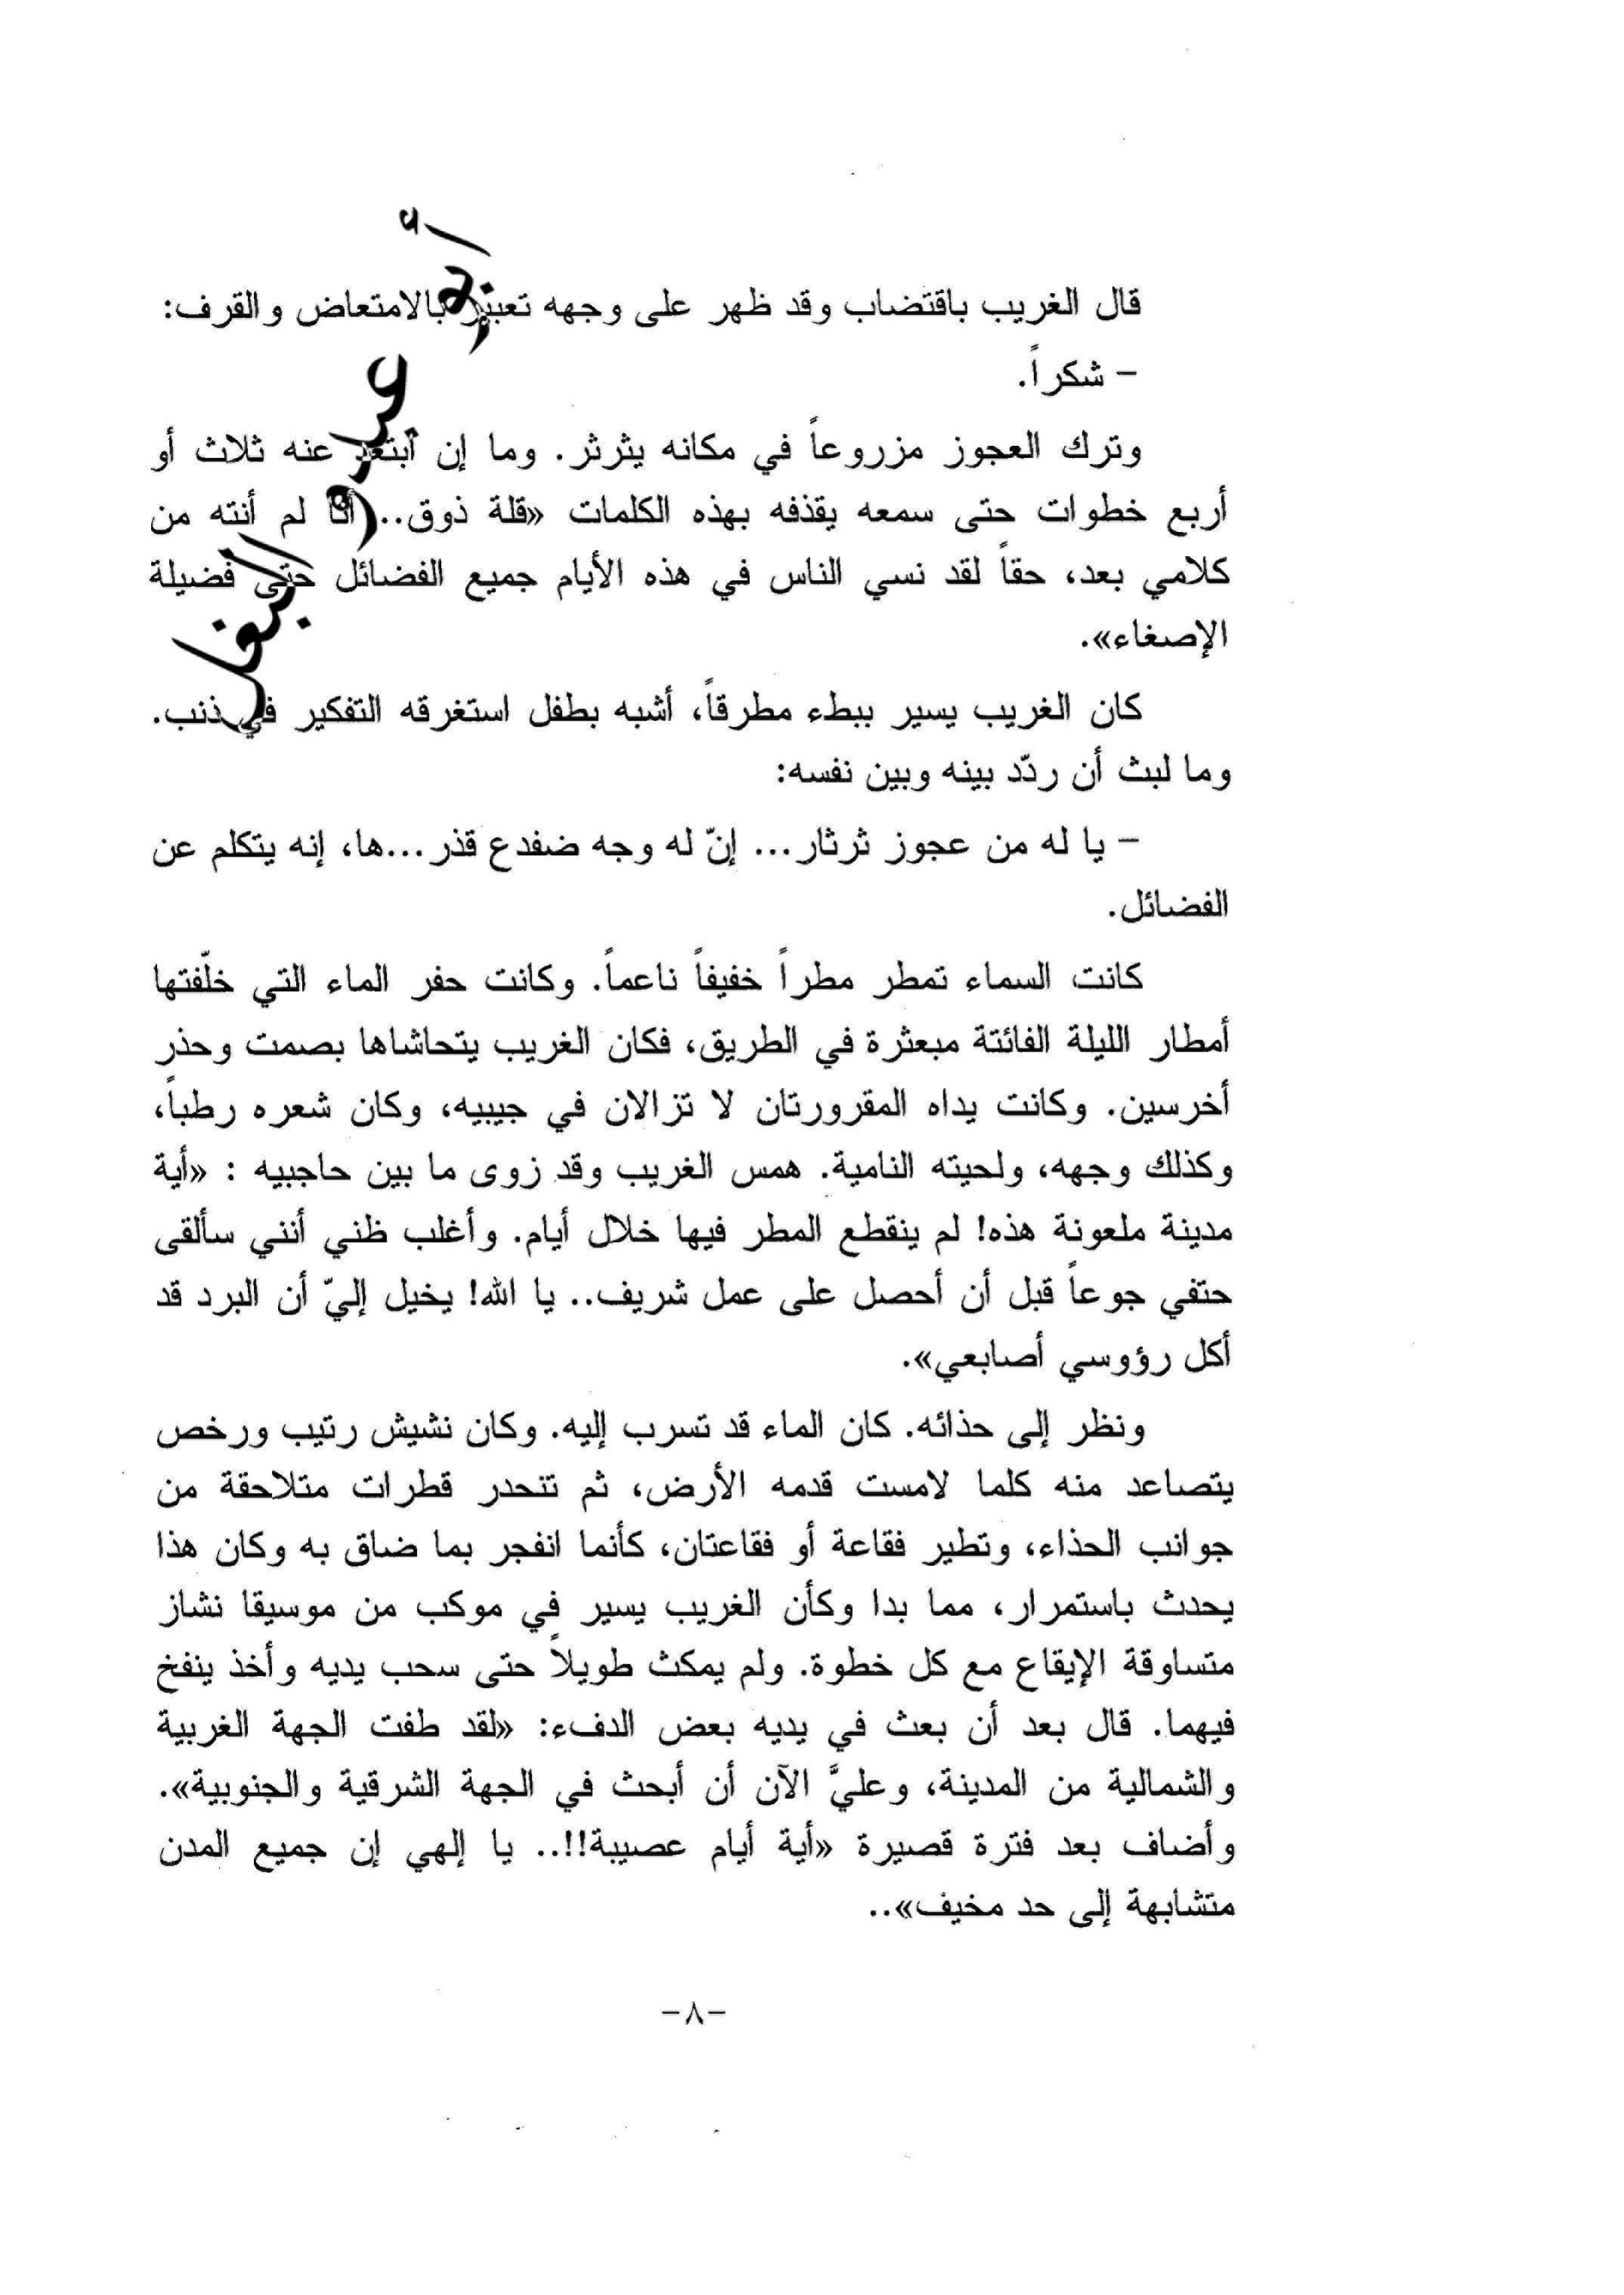 قال الغريب باقتضاب وقد ظهر على وجهه تعبير بالامتعاض والقرف:
- شكراً.
وترك العجوز مزروعاً في مكانه يثرثر. وما إن ابتعد عنه ثلاث أو
أربع خطوات حتى سمعه يقذفه بهذه الكلمات «قلة ذوق.. أنا لم أنته من
كلامي بعد، حقاً لقد نسي الناس في هذه الأيام جميع الفضائل حتى فضيلة
الإصغاء».
كان الغريب يسير ببطء مطرقاً، أشبه بطفل استغرقه التفكير في ذنب.
وما لبث أن ردّد بينه وبين نفسه:
- يا له من عجوز ثرثار... إنّ له وجه ضفدع قذر...ها، إنه يتكلم عن
الفضائل.
كانت السماء تمطر مطراً خفيفاً ناعماً. وكانت حفر الماء التي خلّفتها
أمطار الليلة الفائتة مبعثرة في الطريق، فكان الغريب يتحاشاها بصمت وحذر
أخرسين. وكانت يداه المقرورتان لا تزالان في جيبيه، وكان شعره رطباً،
وكذلك وجهه، ولحيته النامية. همس الغريب وقد زوى ما بين حاجبيه : «أية
مدينة ملعونة هذه! لم ينقطع المطر فيها خلال أيام. وأغلب ظني أنني سألقى
حتفي جوعاً قبل أن أحصل على عمل شريف.. يا الله! يخيل إليّ أن البرد قد
أكل رؤوسي أصابعي».
ونظر إلى حذائه. كان الماء قد تسرب إليه. وكان نشيش رتيب ورخص
يتصاعد منه كلما لامست قدمه الأرض، ثم تنحدر قطرات متلاحقة من
جوانب الحذاء، وتطير فقاعة أو فقاعتان، كأنما انفجر بما ضاق به وكان هذا
يحدث باستمرار، مما بدا وكأن الغريب يسير في موكب من موسيقا نشاز
متساوقة الإيقاع مع كل خطوة. ولم يمكث طويلاً حتى سحب يديه وأخذ ينفخ
فيهما. قال بعد أن بعث في يديه بعض الدفء: «لقد طفت الجهة الغربية
والشمالية من المدينة، وعليَّ الآن أن أبحث في الجهة الشرقية والجنوبية».
وأضاف بعد فترة قصيرة «أية أيام عصيبة!!.. يا إلهي إن جميع المدن
متشابهة إلى حد مخيف»..
-٨-
أبو عبدو البغل